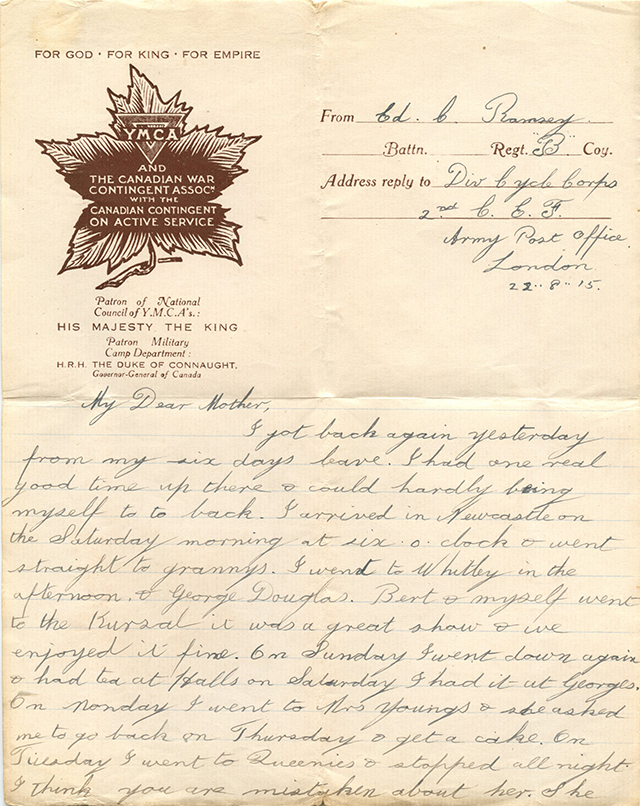 FOR GOD · FOR KING · FOR EMPIRE
Y.M.C.A
AND
THE CANADIAN WAR
CONTINGENT ASSOCN
WITH THE
CANADIAN CONTINGENT
ON ACTIVE SERVICE
Patron of National
Council of Y.M.C.A's.:
HIS MAJESTY THE KING
Patron Military
Camp Department:
H.R.H. THE DUKE OF CONNAUGHT.
Governor-General of Canada
From Ed. C. Ramsey.
Battn. Regt. "B" Coy.
Address reply to Div Cycle Corps
2nd C. E. F.
Army Post Office
London
22"8"15.
My Dear Mother,
I got back again yesterday
from my six days leave. I had one real
good time up there & could hardly bring
myself to to back. I arrived in Newcastle on
the Saturday morning at six.o.clock & went
straight to grannys. I went to Whitley in the
afternoon. & George Douglas. Bert & myself went
to the Kursal it was a great show & we
enjoyed it fine. On Sunday I went down again
& had tea at Halls on Saturday I had it at Georges.
On Monday I went to Mrs Youngs & she asked
me to go back on Thursday & get a cake. On
Tuesday I went to Queenies & stopped all night
I think you are mistyken about her. She